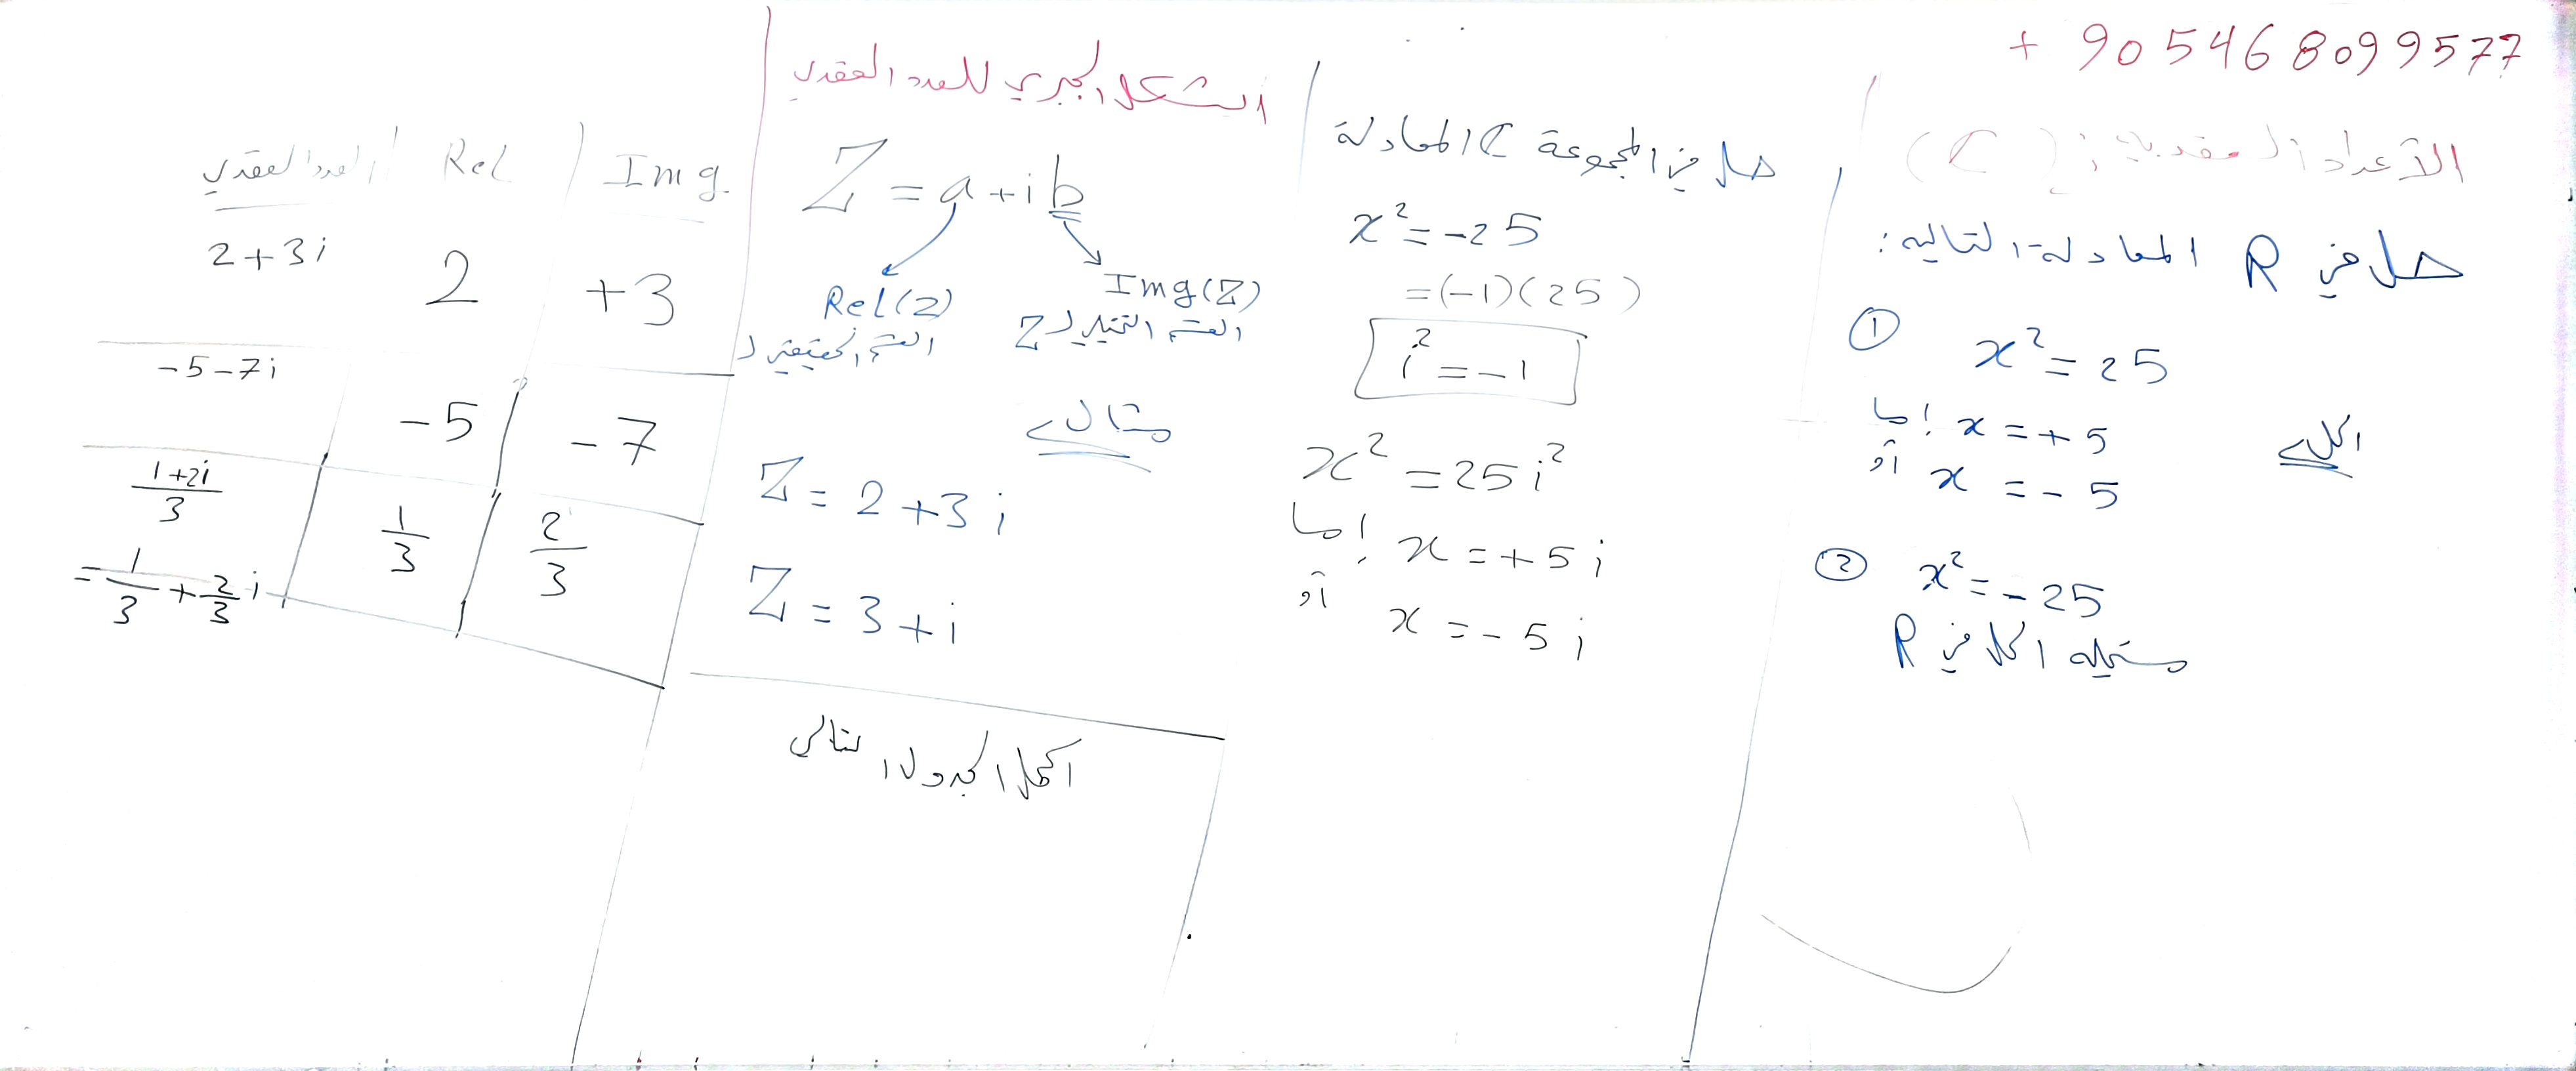 + 905468099577
الأعداد العقدية : ( C )
حل في R المعادلة التالية :
① x² = 25
الحل
إما x = + 5
أو x = - 5
② x² = - 25
مستحيلة الحل في R
حل في المجموعة C المعادلة
x² = -25
= (-1)(25)
i² = -1
x² = 25 i²
إما x = + 5 i
أو x = - 5 i
الشكل الجبري للعدد العقدي
Z = a + i b
Rel(Z)
القسم الحقيقي لـ
Img(Z)
القسم التخيلي لـ Z
مثال
Z = 2 + 3 i
Z = 3 + i
أكمل الجدول التالي
العدد العقدي / Rel / Img
2 + 3 i 2 +3
-5 -7i -5 -7
(1+2i)/3 = 1/3 + 2/3 i 1/3 2/3